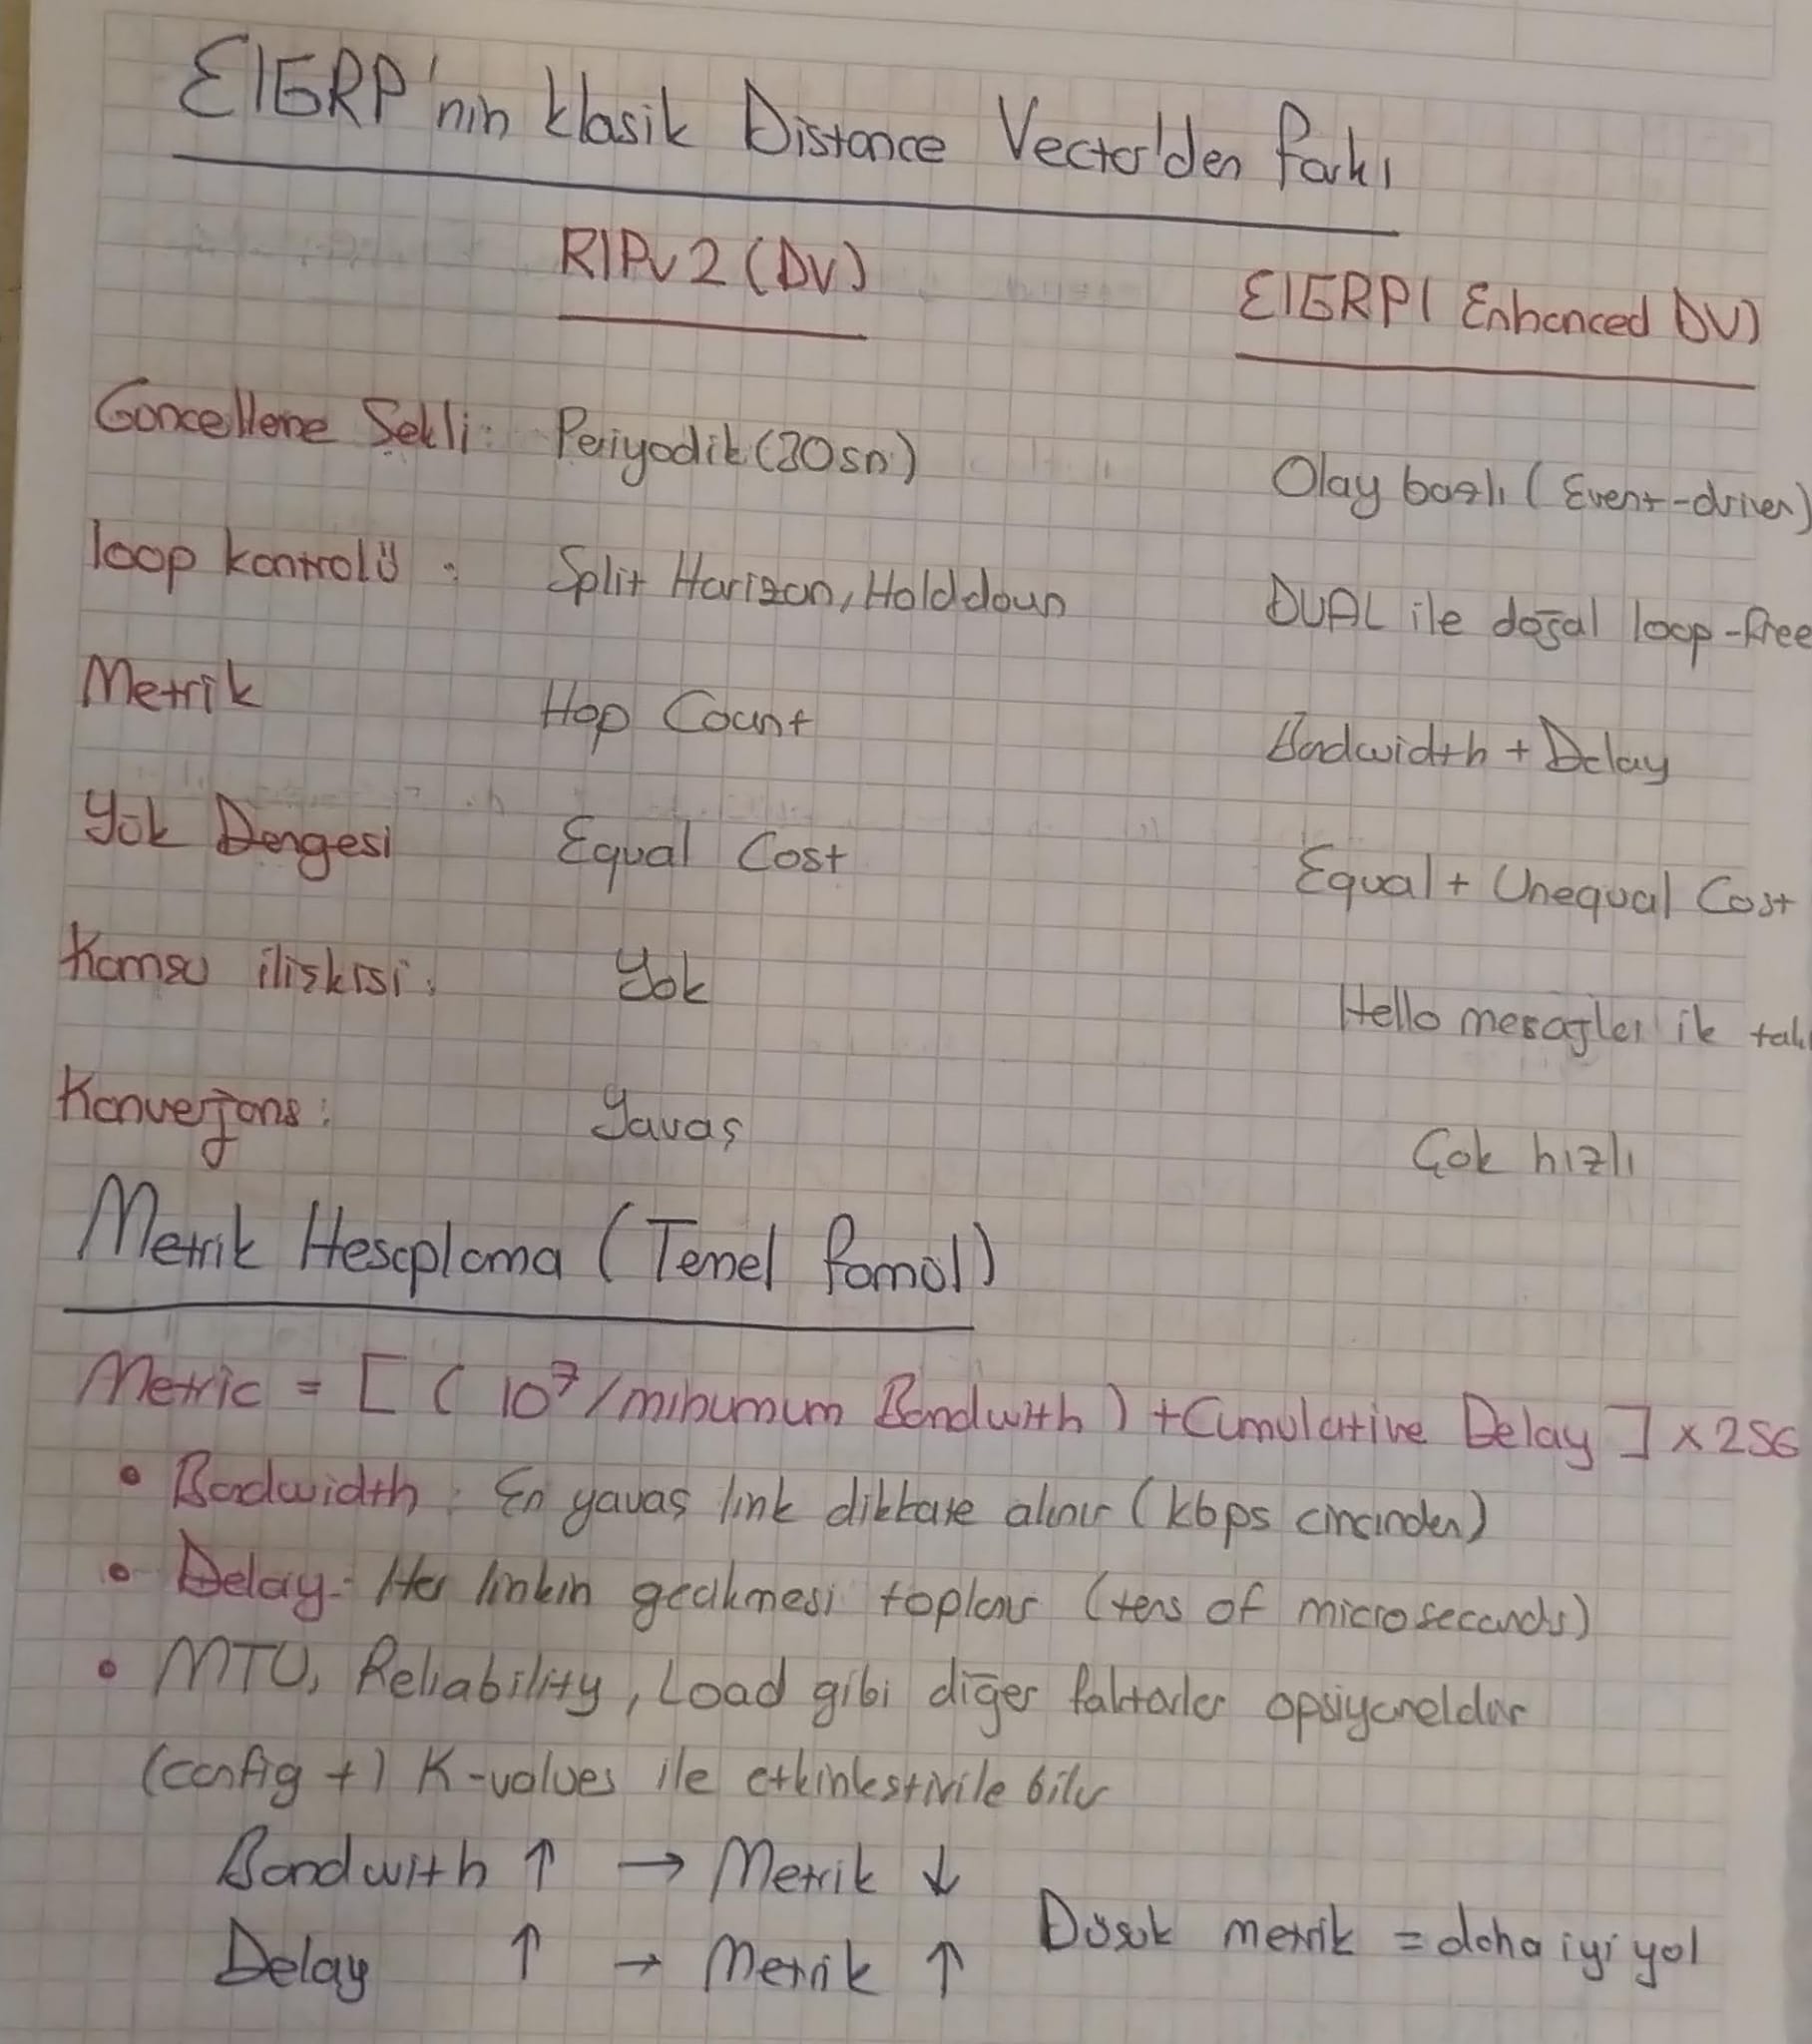 EIGRP'nin klasik Distance Vector'den farkı
RIPv2 (DV) EIGRP( Enhanced DV)
Güncelleme Şekli: Periyodik (30sn) Olay bazlı ( Event-driven)
loop kontrolü : Split Horizon, Holddown DUAL ile doğal loop-free
Metrik Hop Count Badwidth + Delay
Yük Dengesi Equal Cost Equal + Unequal Cost
Komşu ilişkisi: Yok Hello mesajları ile
Konverjans: Yavaş Çok hızlı
Metrik Hesaplama (Temel fomül)
Metric = [ ( 10⁷/minumum Bandwith ) + Cumulative Delay ] x 256
• Badwidth : En yavaş link dikkate alınır (kbps cinsinden)
• Delay: Her linkin gecikmesi toplanır (tens of microseconds)
• MTU, Reliability, Load gibi diğer faktörler opsiyoneldir
(config +) K-values ile etkinleştirile bilir
Bandwith ↑ → Metrik ↓
Delay ↑ → Metrik ↑ Düşük metrik = daha iyi yol